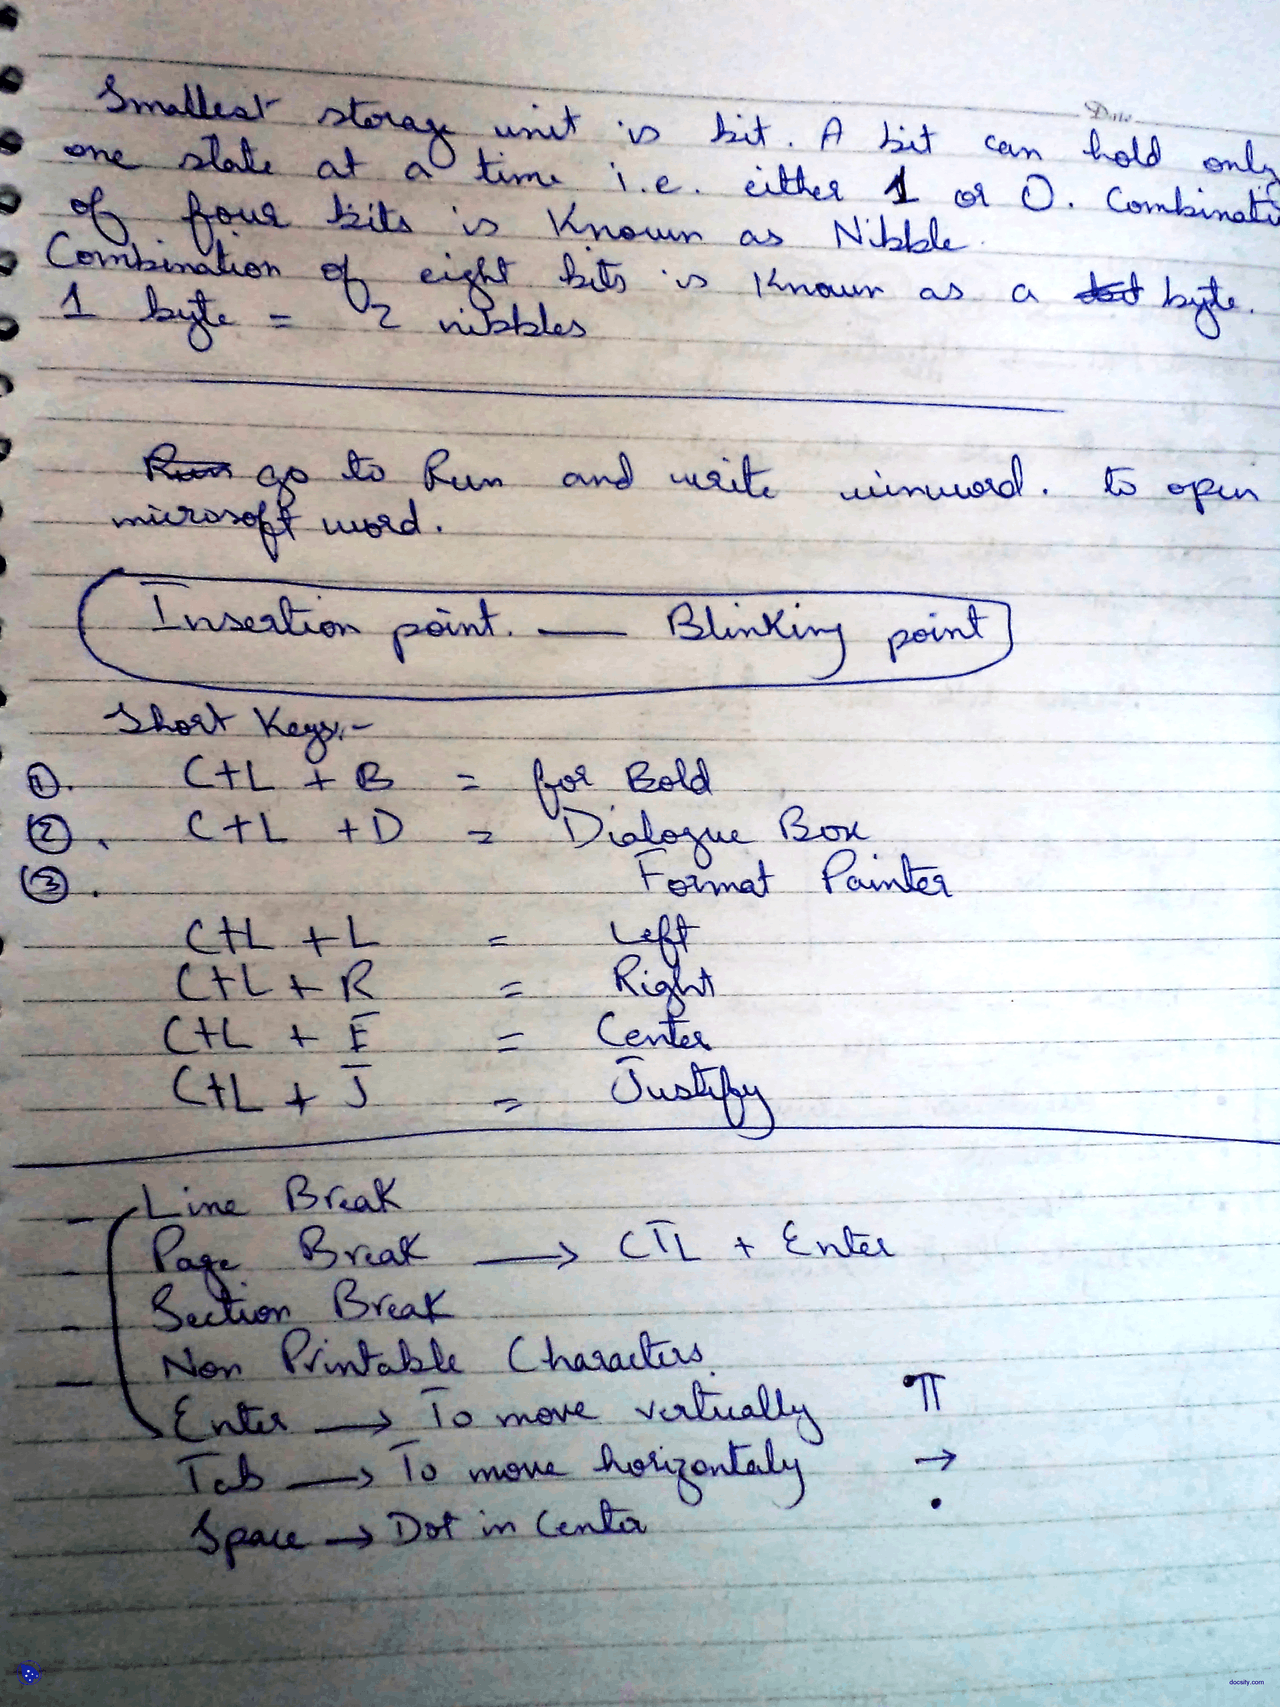 Date
Smallest storage unit is bit. A bit can hold only
one state at a time i.e. either 1 or 0. Combinati
of four bits is Known as Nibble.
Combination of eight bits is Known as a byte.
1 byte = 2 nibbles
Run go to Run and write winword. to open
microsoft word.
Insertion point. — Blinking point
Short Keys:-
①. CtL + B = for Bold
②. CtL + D = Dialogue Box
③. Format Painter
CtL + L = Left
CtL + R = Right
CtL + E = Center
CtL + J = Justify
- Line Break
- Page Break → CTL + Enter
- Section Break
- Non Printable Characters
Enter → To move vertically ¶
Tab → To move horizontaly →
Space → Dot in Center •
docsity.com